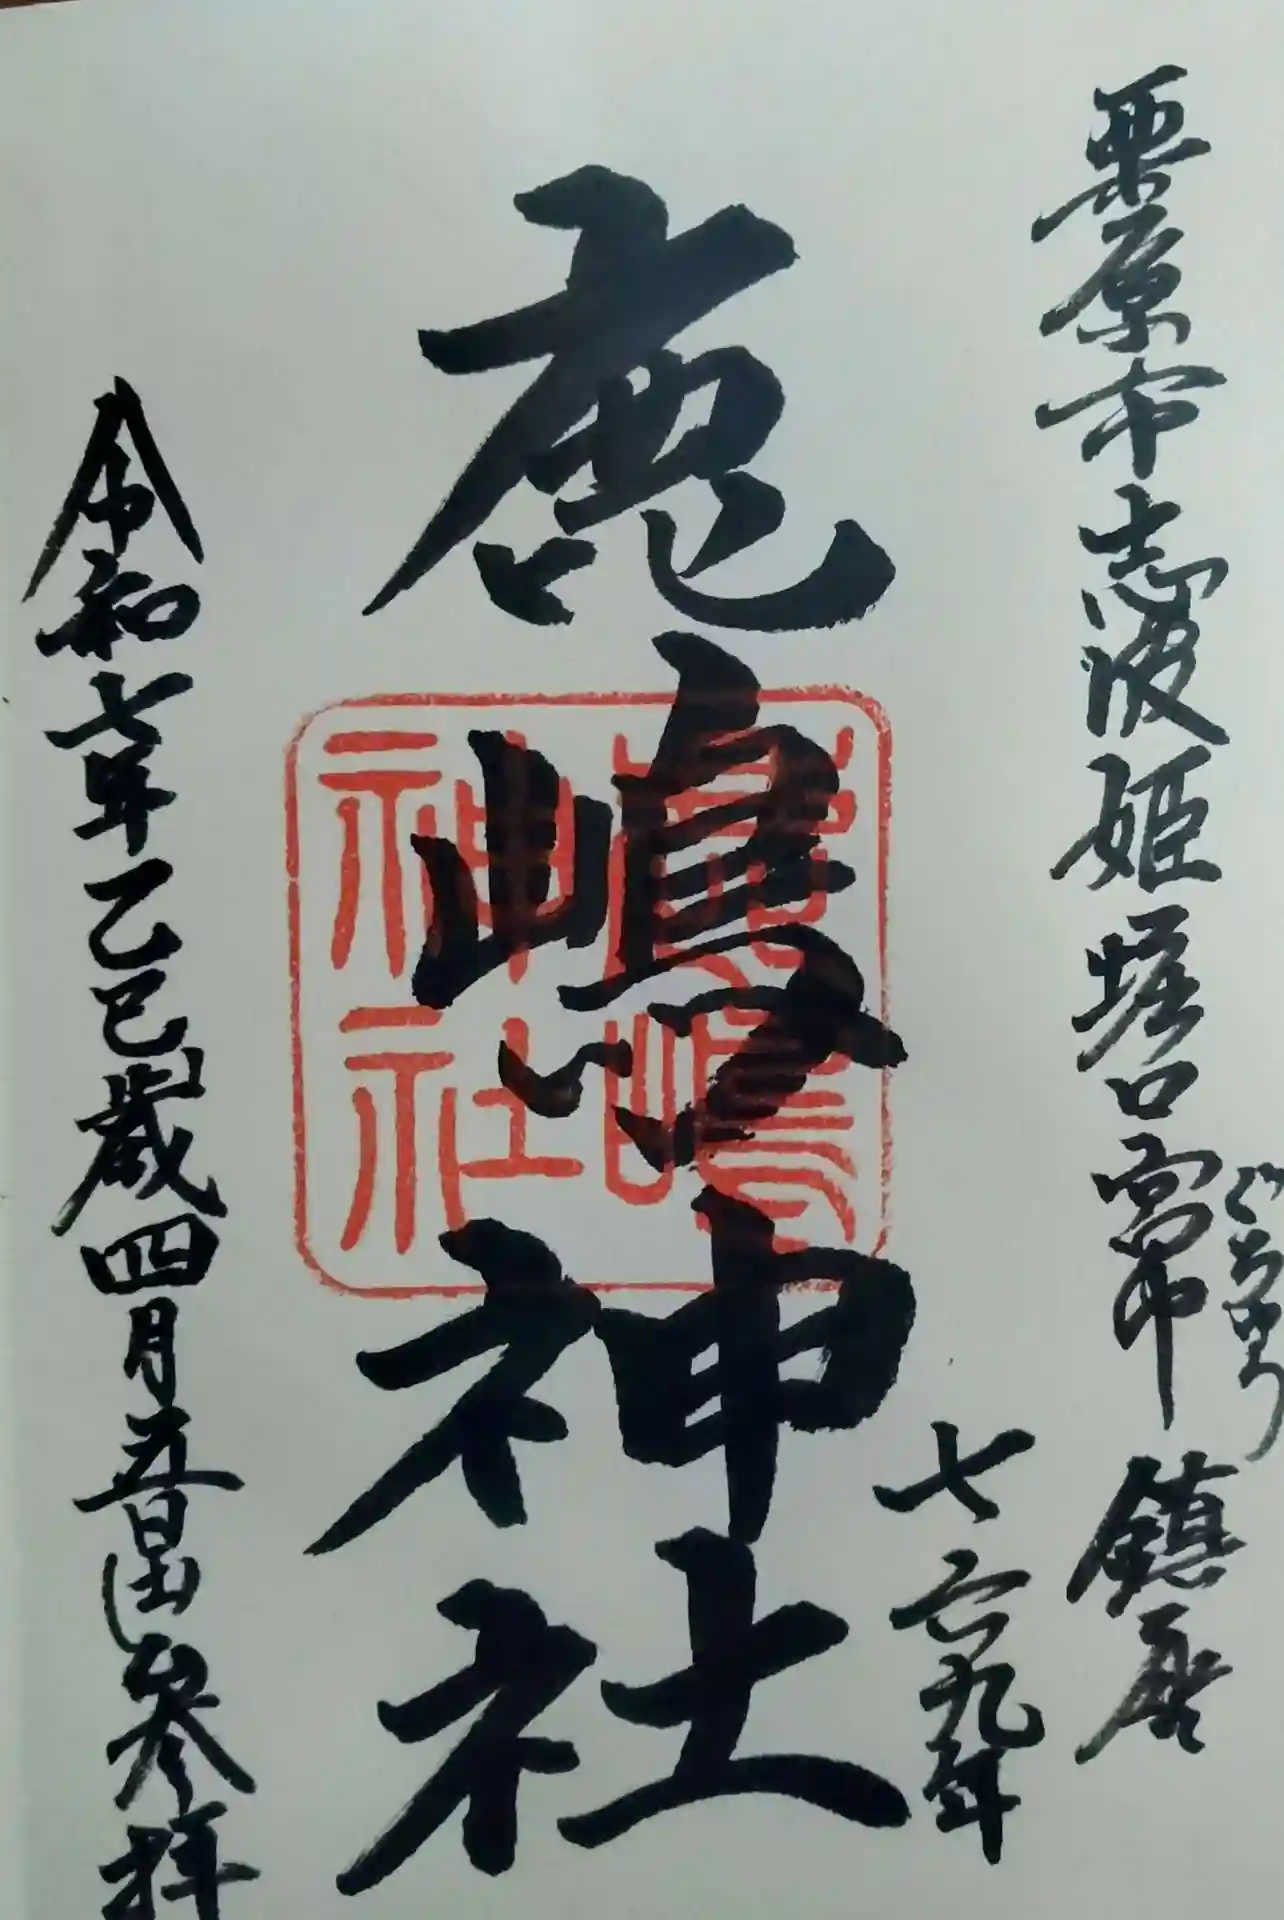 栗原市志波姫堀口 鎮座
七六九年
鹿嶋神社
鹿嶋
神社
令和七年乙巳歳四月吉日参拝